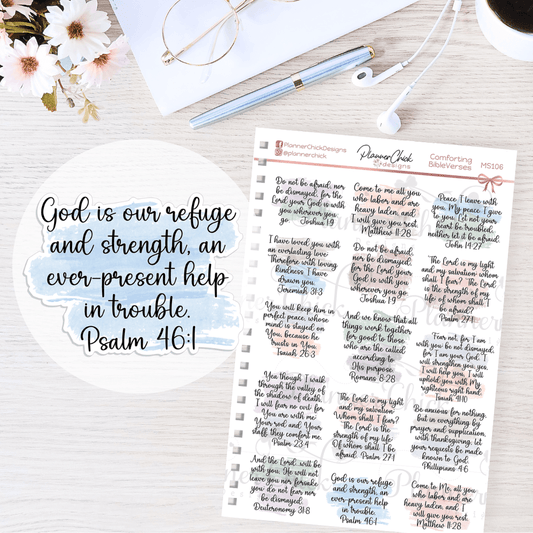 God is our refuge
and strength, an
ever-present help
in trouble.
Psalm 46:1
@PlannerChickDesigns
@plannerchick
PlannerChick
designs
Comforting
BibleVerses
MS106
Do not be afraid, nor
be dismayed, for the
Lord your God is with
you wherever you
go. Joshua 1:9
Come to me all you
who labor and are
heavy laden, and
I will give you rest.
Matthew 11:28
Peace I leave with
you, My peace I give
to you. Let not your
heart be troubled,
neither let it be afraid.
John 14:27
I have loved you with
an everlasting love
Therefore with loving
kindness I have
drawn you.
Jeremiah 31:3
Do not be afraid,
nor be dismayed,
for the Lord your
God is with you
wherever you go.
Joshua 1:9
The Lord is my light
and my salvation whom
shall I fear? The Lord
is the strength of my
life of whom shall I be
afraid?
Psalm 27:1
You will keep him in
perfect peace, whose
mind is stayed on
You, because he
trusts in You.
Isaiah 26:3
And we know that all
things work together
for good to those
who are the called
according to
His purpose.
Romans 8:28
Fear not, for I am
with you be not dismayed,
for I am your God. I will
strengthen you, yes,
I will help you, I will
uphold you with My
righteous right hand.
Isaiah 41:10
Yea though I walk
through the valley of
the shadow of death,
I will fear no evil. for
You are with me
Your rod and Your
staff, they comfort me.
Psalm 23:4
The Lord is my light
and my salvation
Whom shall I fear?
The Lord is the
strength of my life
Of whom shall I be
afraid. Psalm 27:1
Be anxious for nothing,
but in everything by
prayer and supplication,
with thanksgiving, let
your requests be made
known to God.
Phillipians 4:6
And the Lord, will be
with you, He will not
leave you nor forsake
you do not fear nor
be dismayed.
Deuteronomy 31:8
God is our refuge
and strength, an
ever-present help
in trouble.
Psalm 46:1
Come to Me, all you
who labor and are
heavy laden, and I
will give you rest.
Matthew 11:28